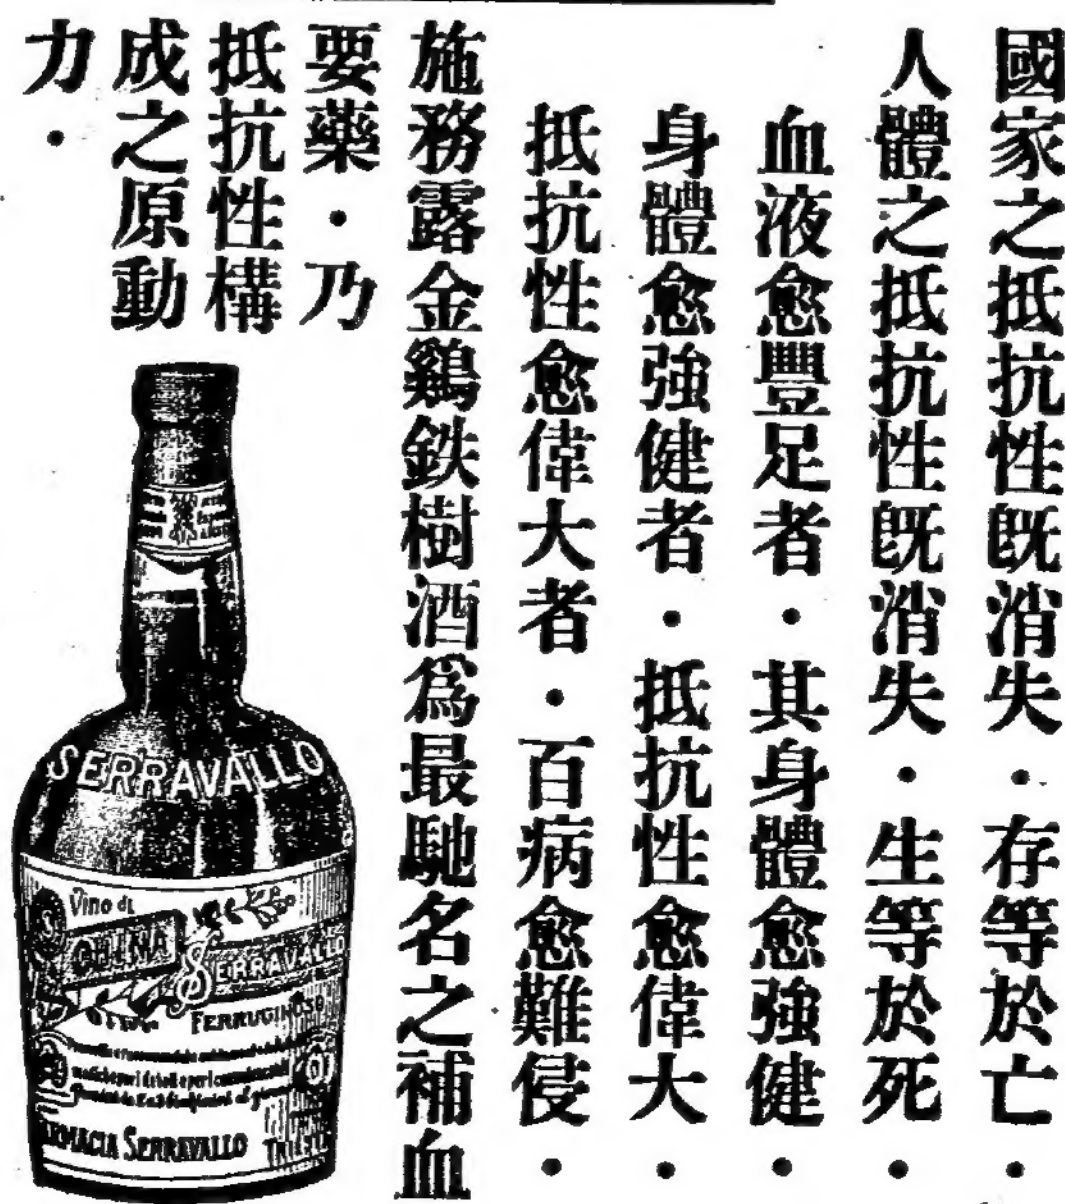 國家之抵抗性既消失・存等於亡・
人體之抵抗性既消失・生等於死・
血液愈豐足者・其身體愈強健・
身體愈強健者・抵抗性愈偉大・
抵抗性愈偉大者・百病愈難侵・
施務露金鷄鉄樹酒爲最馳名之補血
要藥・乃
抵抗性構
成之原動
力・
SERRAVALLO
Vino di
CHINA
SERRAVALLO
FERRUGINOSO
FARMACIA SERRAVALLO